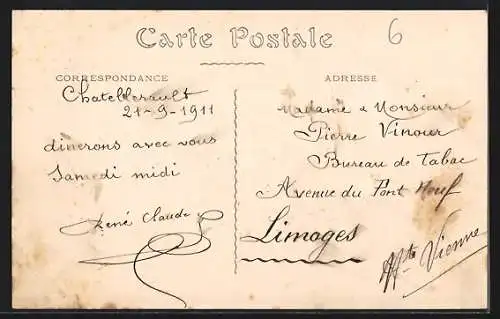 Carte Postale
6
CORRESPONDANCE
Chatellerault
21-9-1911
dinerons avec vous
Samedi midi
René Claude
ADRESSE
Madame & Monsieur
Pierre Vinour
Bureau de Tabac
Avenue du Pont Neuf
Limoges
Hte Vienne